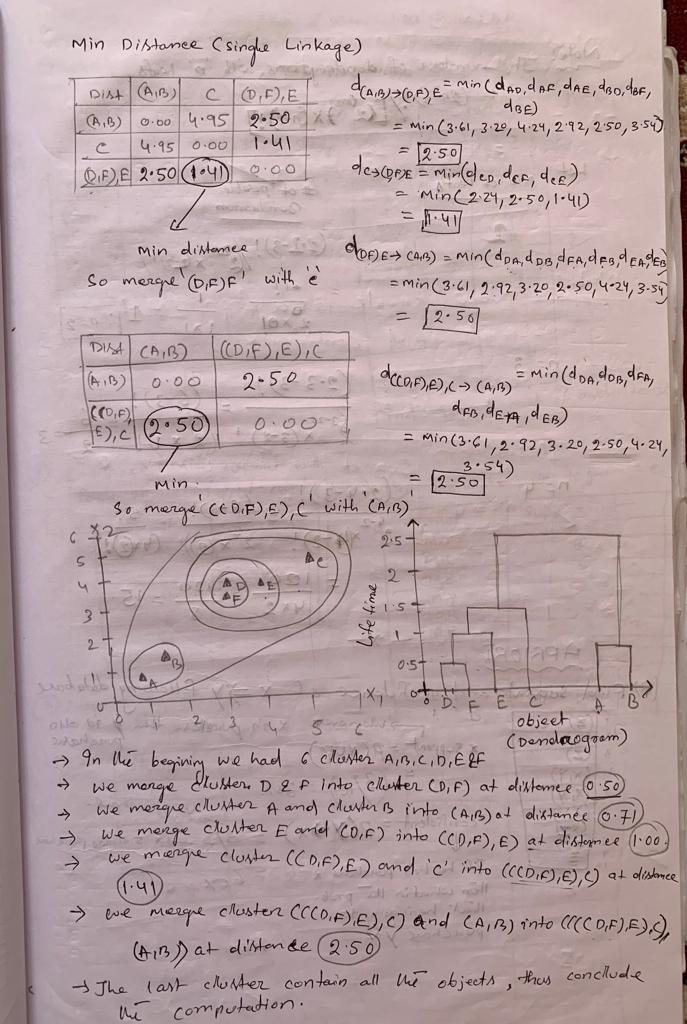 Min Distance (Single Linkage)
Dist (A,B) C (D,F),E
(A,B) 0.00 4.95 2.50
C 4.95 0.00 1.41
(D,F),E 2.50 1.41 0.00
min distance
So merge '(D,F)F' with 'e'
d(A,B)→(D,F),E = min(dAD, dAF, dAE, dBD, dBF,
dBE)
= min(3.61, 3.20, 4.24, 2.92, 2.50, 3.54)
= 2.50
dC→(DF)E = min(dCD, dCF, dCE)
= min(2.24, 2.50, 1.41)
= 1.41
d(DF)E→(AB) = min(dDA, dDB, dFA, dFB, dEA, dEB)
= min(3.61, 2.92, 3.20, 2.50, 4.24, 3.54)
= 2.50
Dist (A,B) ((D,F),E),C
(A,B) 0.00 2.50
((D,F)
E),C 2.50 0.00
Min.
So marge '((D,F),E),C' with '(A,B)'
d((D,F),E),C→(A,B) = min(dDA, dDB, dFA,
dFB, dEA, dEB)
= min(3.61, 2.92, 3.20, 2.50, 4.24,
3.54)
= 2.50
6 X2
5
4
3
2
0
0 1 2 3 4 5 6
X1
A
B
D
F
E
C
Life time
2.5
2
1.5
1
0.5
0
D F E C A B
object
(Dendrogram)
→ In the begining we had 6 cluster A,B,C,D,E&F
→ we merge cluster D & F into cluster (D,F) at distance 0.50
→ we merge cluster A and cluster B into (A,B) at distance 0.71
→ we merge cluster E and (D,F) into ((D,F),E) at distance 1.00
→ we merge cluster ((D,F),E) and 'C' into (((D,F),E),C) at distance
1.41
→ we merge cluster (((D,F),E),C) and (A,B) into ((((D,F),E),C),
(A,B)) at distance 2.50
→ The last cluster contain all the objects, thus conclude
the computation.